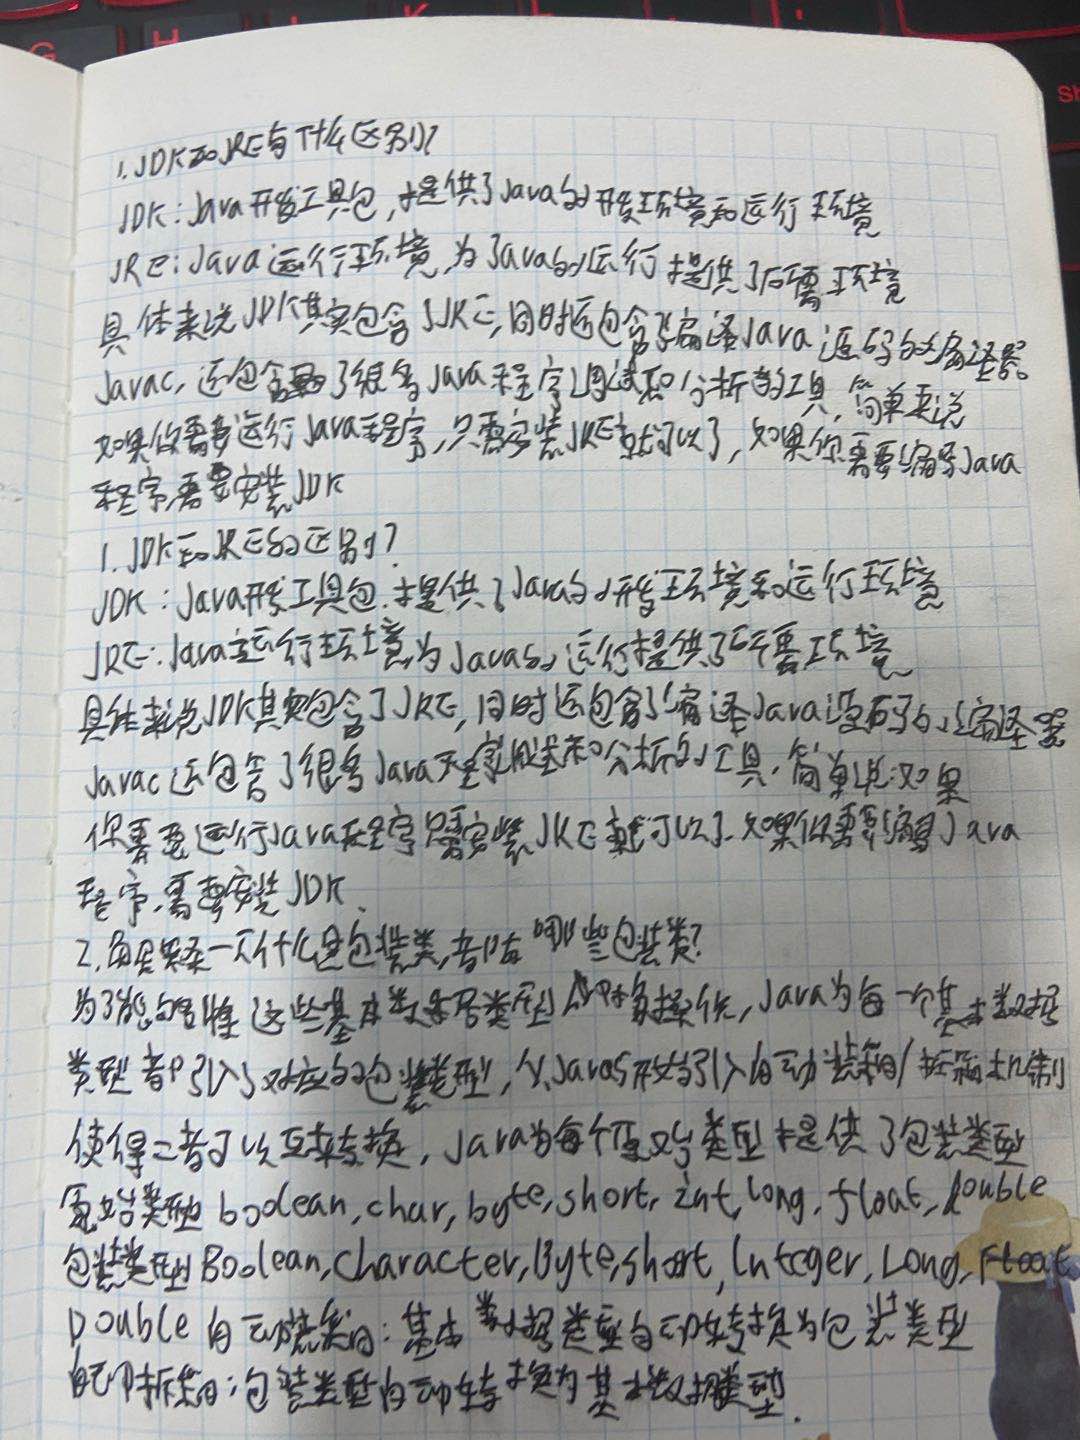 1.JDK和JRE有什么区别?
JDK:Java开发工具包,提供了Java的开发环境和运行环境
JRE:Java运行环境,为Java的运行提供了所需环境
具体来说JDK其实包含了JRE,同时还包含了编译Java源码的编译器
Javac,还包含了很多Java程序调试和分析的工具,简单来说
如果你需要运行Java程序,只需安装JRE就可以了,如果你需要编写Java
程序,需要安装JDK
1.JDK和JRE的区别?
JDK:Java开发工具包.提供了Java的开发环境和运行环境
JRE:Java运行环境,为Java的运行提供了所需要环境
具体来说JDK其实包含了JRE,同时还包含了编译Java源码的编译器
Javac还包含了很多Java程序调试和分析的工具,简单说:如果
你需要运行Java程序只需安装JRE就可以了.如果你需要编写Java
程序,需要安装JDK.
2.解释一下什么是包装类,都有哪些包装类?
为了能够将这些基本数据类型当中对象操作,Java为每一个基本数据
类型都引入了对应的包装类型,从Java5开始引入自动装箱/拆箱机制
使得二者可以互相转换,Java为每个原始类型提供了包装类型
原始类型boolean,char,byte,short,int,long,float,double
包装类型Boolean,Character,Byte,Short,Integer,Long,Float
Double自动装箱:基本数据类型自动转换为包装类型
自动拆箱:包装类型自动转换为基本数据类型.